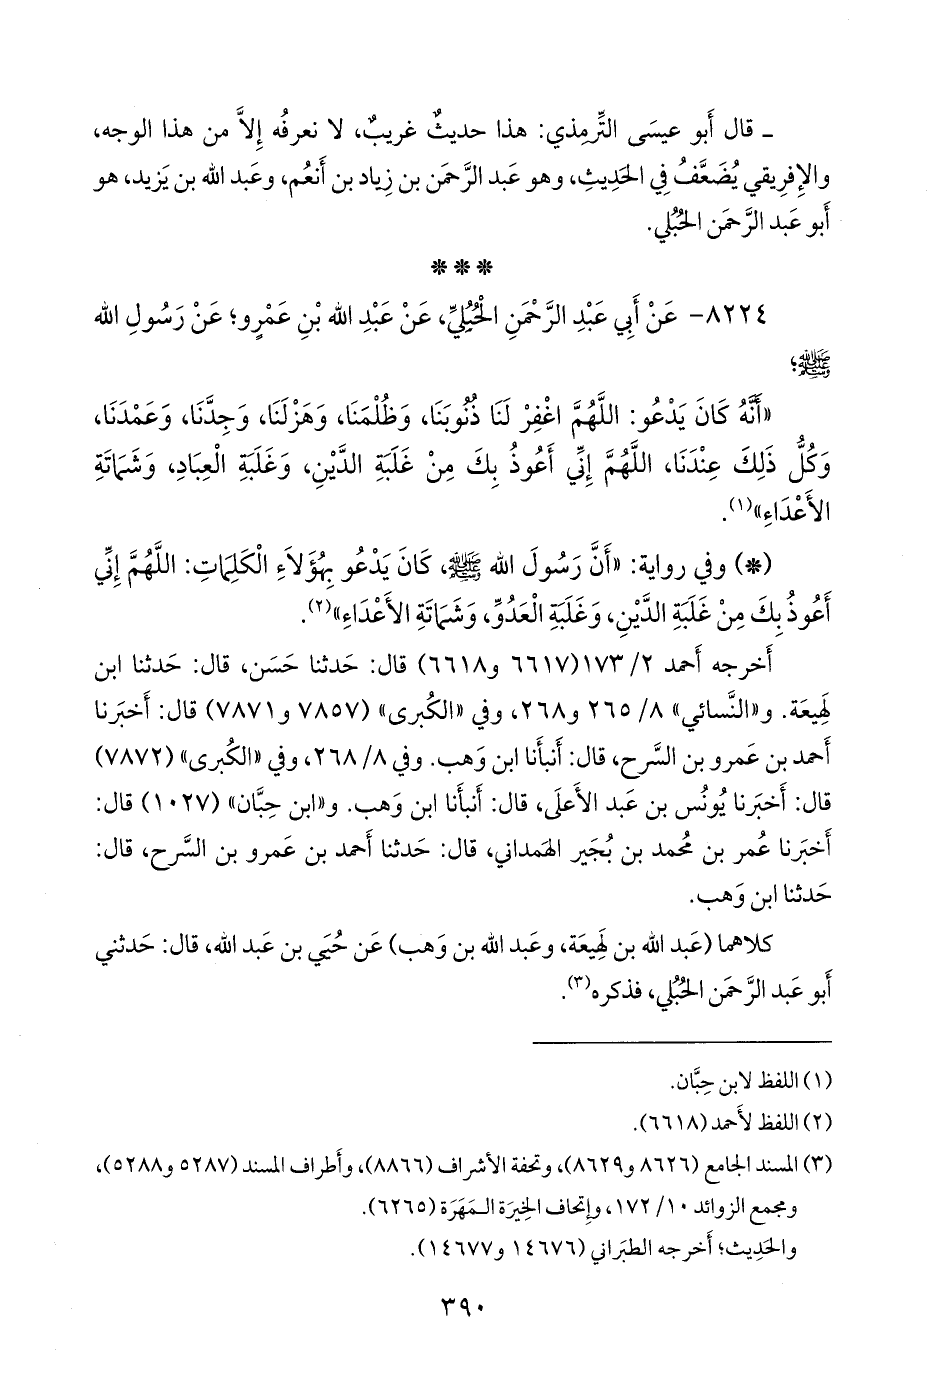 ـ قال أَبو عيسَى التِّرمِذي: هذا حديثٌ غريبٌ، لا نعرفُه إِلاَّ من هذا الوجه،
والإِفرِيقي يُضَعَّفُ فِي الحَدِيثِ، وهو عَبد الرَّحمَن بن زِياد بن أَنعُم، وعَبد الله بن يَزيد، هو
أَبو عَبد الرَّحمَن الحُبُلي.
* * *
٨٢٢٤- عَنْ أَبِي عَبْدِ الرَّحْمَنِ الْحُبُلِيِّ، عَنْ عَبْدِ الله بْنِ عَمْرٍو؛ عَنْ رَسُولِ الله
ﷺ؛
«أَنَّهُ كَانَ يَدْعُو: اللَّهُمَّ اغْفِرْ لَنَا ذُنُوبَنَا، وَظُلْمَنَا، وَهَزْلَنَا، وَجِدَّنَا، وَعَمْدَنَا،
وَكُلُّ ذَلِكَ عِنْدَنَا، اللَّهُمَّ إِنِّي أَعُوذُ بِكَ مِنْ غَلَبَةِ الدَّيْنِ، وَغَلَبَةِ الْعِبَادِ، وَشَمَاتَةِ
الأَعْدَاءِ»(١).
(*) وفي رواية: «أَنَّ رَسُولَ الله ﷺ، كَانَ يَدْعُو بِهَؤُلاَءِ الْكَلِمَاتِ: اللَّهُمَّ إِنِّي
أَعُوذُ بِكَ مِنْ غَلَبَةِ الدَّيْنِ، وَغَلَبَةِ الْعَدُوِّ، وَشَمَاتَةِ الأَعْدَاءِ»(٢).
أَخرجه أَحمد ٢/ ١٧٣(٦٦١٧ و٦٦١٨) قال: حَدثنا حَسَن، قال: حَدثنا ابن
لَهِيعَة. و«النَّسائي» ٨/ ٢٦٥ و٢٦٨، وفي «الكُبرى» (٧٨٥٧ و٧٨٧١) قال: أَخبَرنا
أَحمد بن عَمرو بن السَّرح، قال: أَنبأَنا ابن وَهب. وفي ٨/ ٢٦٨، وفي «الكُبرى» (٧٨٧٢)
قال: أَخبَرنا يُونُس بن عَبد الأَعلَى، قال: أَنبأَنا ابن وَهب. و«ابن حِبَّان» (١٠٢٧) قال:
أَخبَرنا عُمر بن مُحمد بن بُجَير الهَمداني، قال: حَدثنا أَحمد بن عَمرو بن السَّرح، قال:
حَدثنا ابن وَهب.
كلاهما (عَبد الله بن لَهِيعَة، وعَبد الله بن وَهب) عَن حُيَي بن عَبد الله، قال: حَدثني
أَبو عَبد الرَّحمَن الحُبُلي، فذكره(٣).
(١) اللفظ لابن حِبَّان.
(٢) اللفظ لأَحمد (٦٦١٨).
(٣) المسند الجامع (٨٦٢٦ و٨٦٢٩)، وتحفة الأشراف (٨٨٦٦)، وأَطراف المسند (٥٢٨٧ و٥٢٨٨)،
ومجمع الزوائد ١٠/ ١٧٢، وإِتحاف الخِيرَة الـمَهَرَة (٦٢٦٥).
والحَدِيث؛ أَخرجه الطبَراني (١٤٦٧٦ و١٤٦٧٧).
٣٩٠